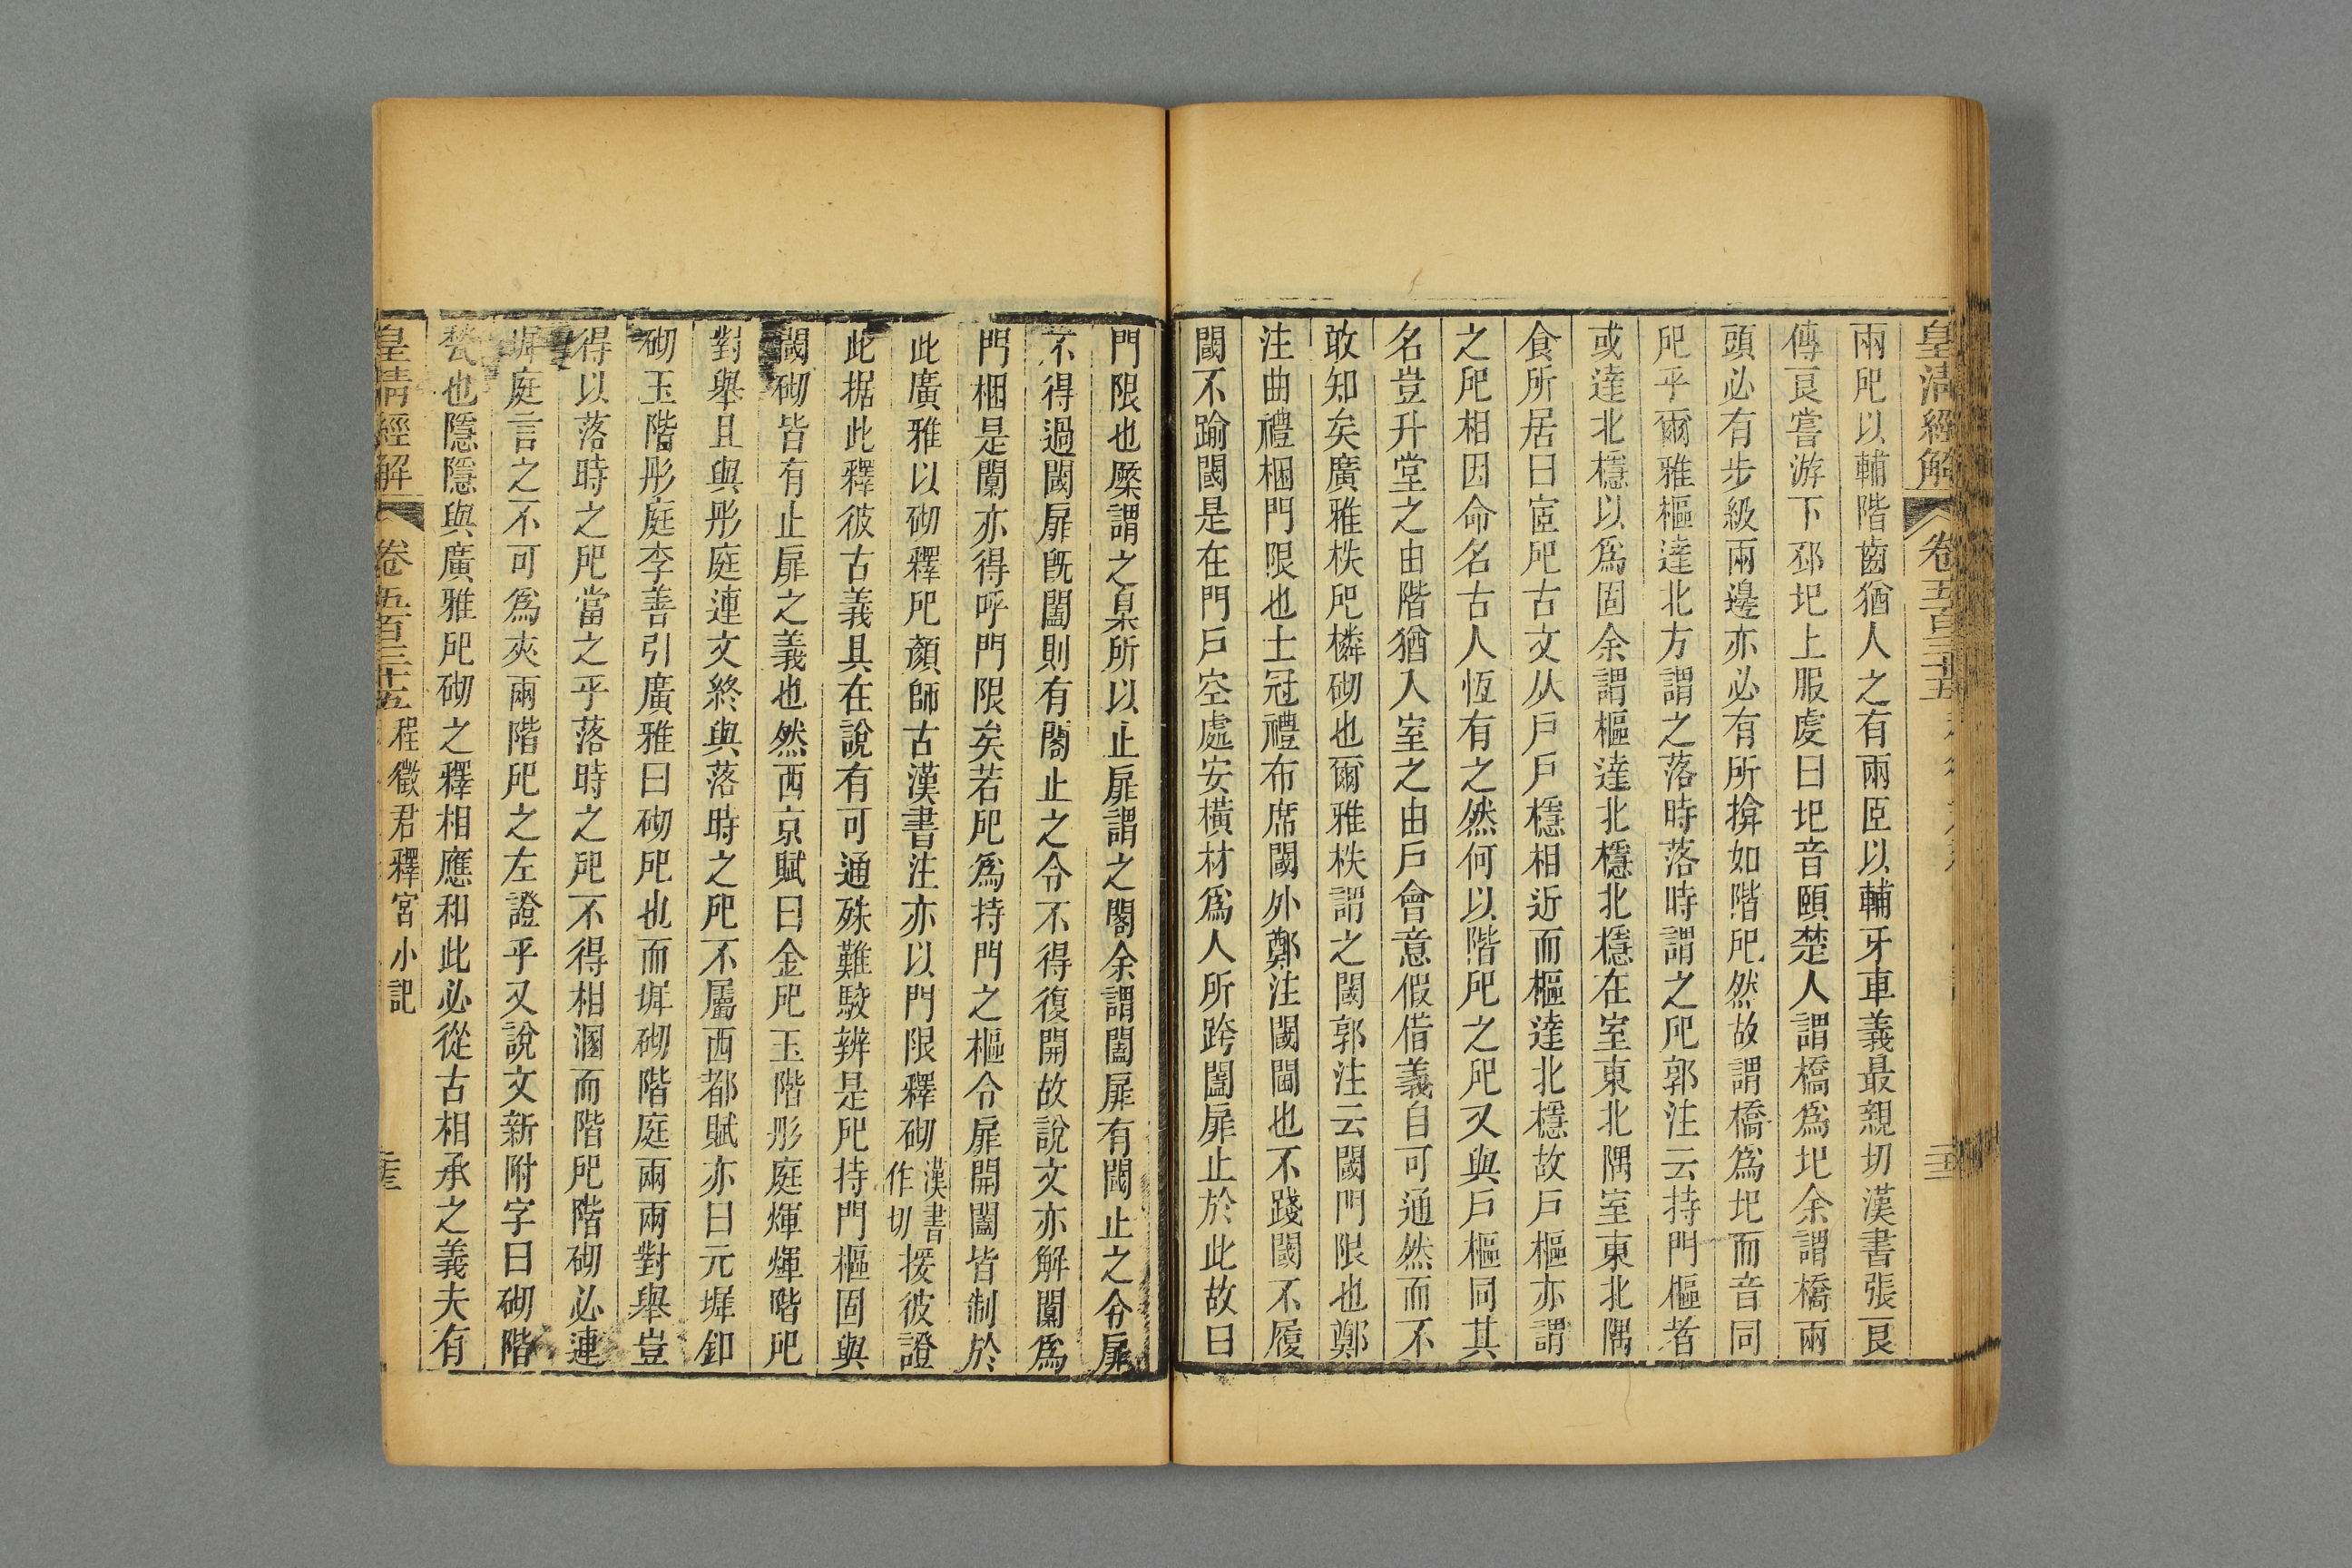 皇清經解 卷五百三十五
兩戺以輔階齒猶人之有兩臣以輔牙車義最親切漢書張良
傳良嘗游下邳圯上服虔曰圯音頤楚人謂橋爲圯余謂橋兩
頭必有步級兩邊亦必有所揜如階戺然故謂橋爲圯而音同
戺乎爾雅樞達北方謂之落時落時謂之戺郭注云持門樞者
或達北檼以爲固余謂樞達北檼北檼在室東北隅室東北隅
食所居曰宧戺古文从戶戶檼相近而樞達北檼故戶樞亦謂
之戺相因命名古人恆有之然何以階戺之戺又與戶樞同其
名豈升堂之由階猶入室之由戶會意假借義自可通然而不
敢知矣廣雅柣戺橉砌也爾雅柣謂之閾郭注云閾門限也鄭
注曲禮梱門限也士冠禮布席閾外鄭注閾閫也不踐閾不履
閾不踰閾是在門戶空處安橫材爲人所跨闔扉止於此故曰
門限也橜謂之臬所以止扉謂之閣余謂闔扉有閾止之令扉
不得過閾扉旣闔則有閣止之令不得復開故說文亦解闑爲
門梱是闑亦得呼門限矣若戺爲持門之樞令扉開闔皆制於
此廣雅以砌釋戺顏師古漢書注亦以門限釋砌漢書作切援彼證
此据此釋彼古義具在說有可通殊難駮辨是戺持門樞固與
閾砌皆有止扉之義也然西京賦曰金戺玉階彤庭煇煇階戺
對舉且與彤庭連文終與落時之戺不屬西都賦亦曰元墀釦
砌玉階彤庭李善引廣雅曰砌戺也而墀砌階庭兩兩對舉豈
得以落時之戺當之乎落時之戺不得相溷而階戺階砌必連
墀庭言之不可爲夾兩階戺之左證乎又說文新附字曰砌階
甃也隱隱與廣雅戺砌之釋相應和此必從古相承之義夫有
皇清經解 卷五百三十五 程徵君釋宮小記